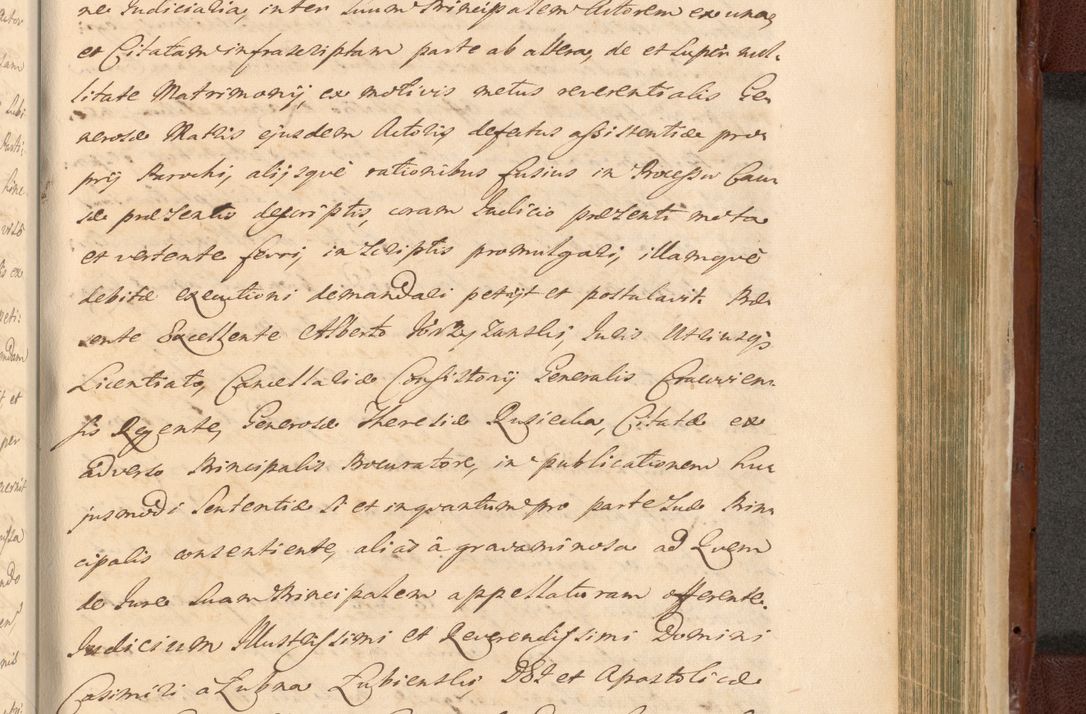 ne Judicialia, inter Suum Principalem Actorem ex una,
et Citatam infrascriptam parte ab altera, de et Super nul-
litate Matrimonij, ex motivis metus reverentialis Ge-
nerosæ Matris ejusdem Actoris, defectus assistentiæ pro-
prij Parochi, alijsque rationibus fusius in Processu Cau-
sæ præsentis descriptis, coram Judicio præsenti mota
et vertente ferri, in Scriptis promulgari, illamque
debitæ executioni demandari petijt et postulavit. Præ-
sente Excellente Alberto Juris Utriusq3
Licentiato, Cancellariæ Consistorij Generalis Cracovien-
sis Regente, Generosæ Theresiæ Citatæ ex
adverso Principalis Procuratore, in publicationem hu-
jusmodi Sententiæ Si et inquantum pro parte Suæ Prin-
cipalis consentiente, alias à gravaminosa ad Quem
de Jure Suam Principalem appellaturam offerente.
Judicium Illustrissimi et Reverendissimi Domini
Casimiri à Łubna Łubienski, D&I et Apostolicæ